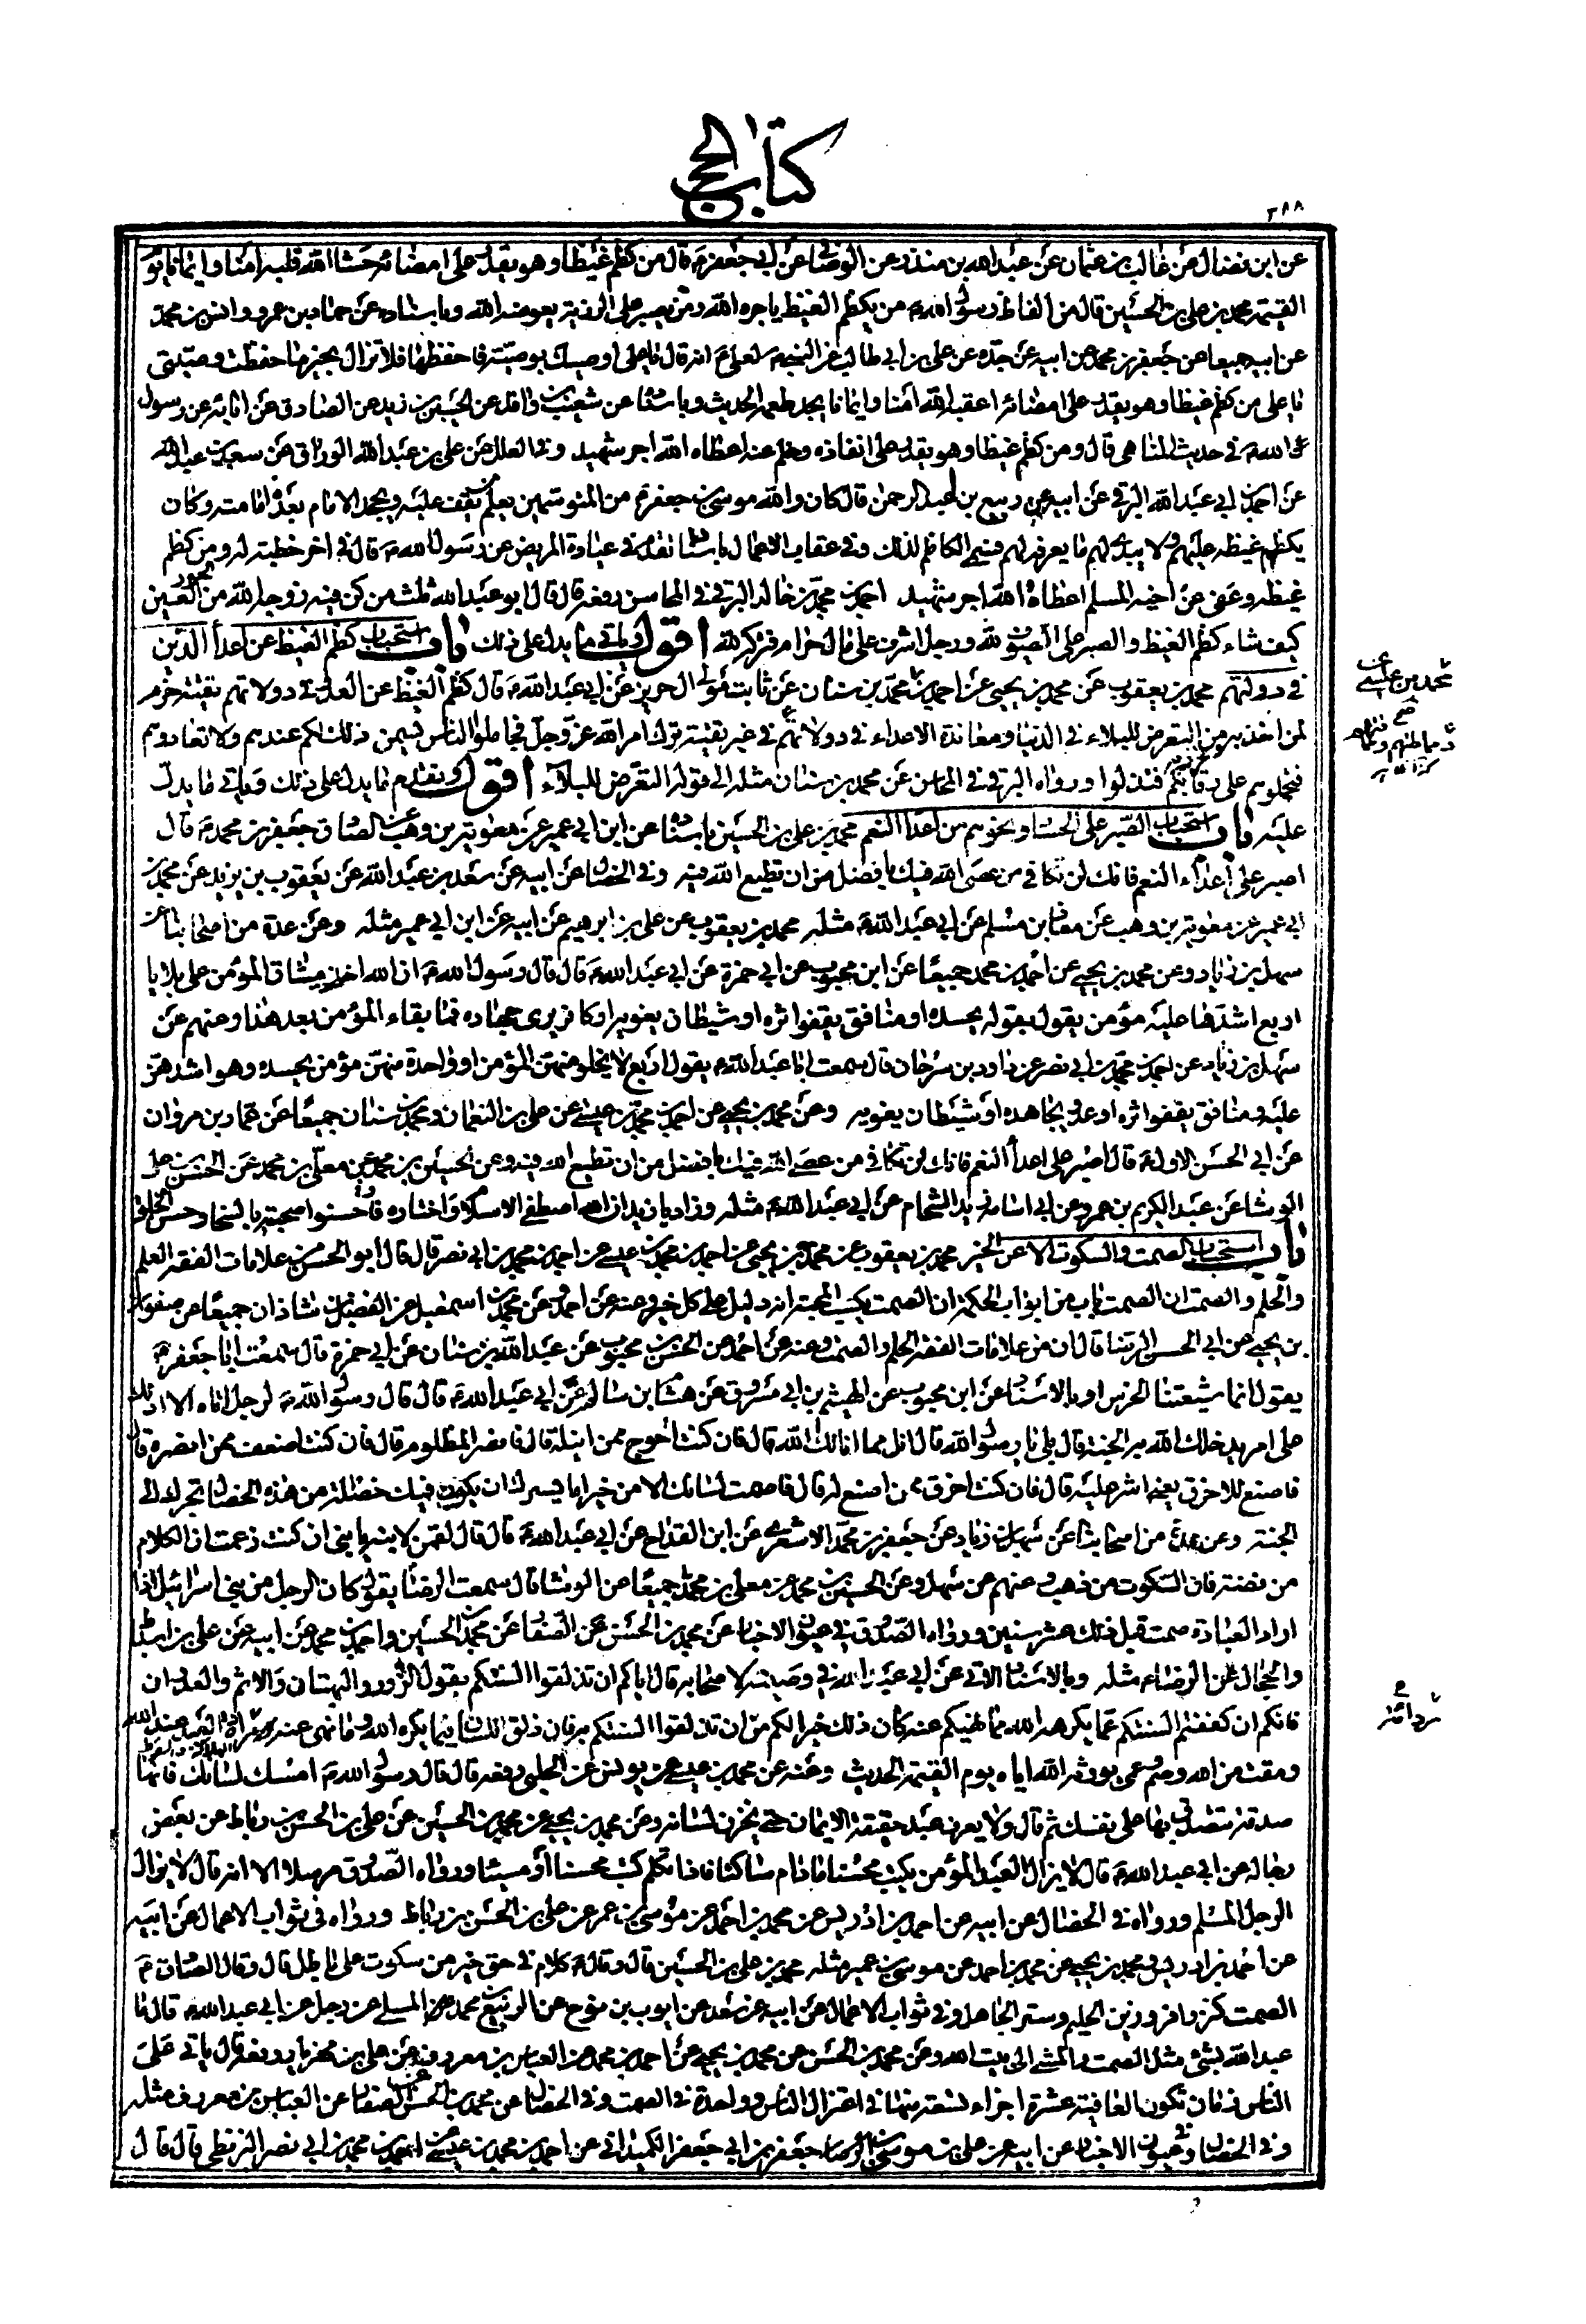 كتاب الحج
٣٨٨
عن ابن فضال عن غالب بن عثمان عن عبد الله بن منذر عن الوصافى عن ابي جعفر ع قال من كظم غيظا وهو يقدر على امضائه حشا الله قلبه امنا وايمانا يوم
القيمة محمد بن على بن الحسين قال من الفاظ رسول الله ص من يكظم الغيظ ياجره الله ومن يصبر على الرزية يعوضه الله وباسناده عن حماد بن عمرو وانس بن محمد
عن ابيه جميعا عن جعفر بن محمد عن ابيه عن جده عن على بن ابي طالب عن النبي ص لعلى ع انه قال يا على اوصيك بوصية فاحفظها فلا تزال بخير ما حفظت وصيتى
يا على من كظم غيظا وهو يقدر على امضائه اعقبه الله امنا وايمانا يجد طعمه الحديث وباسناده عن شعيب بن واقد عن الحسين بن زيد عن الصادق عن ابائه عن رسول
الله ص في حديث المناهى قال ومن كظم غيظا وهو يقدر على انفاذه وحلم عنه اعطاه الله اجر شهيد وفي العلل عن على بن عبد الله الوراق عن سعد بن عبد الله
عن احمد بن ابي عبد الله البرقى عن ابيه عن ربيع بن عبد الرحمن قال كان والله موسى بن جعفر ع من المتوسمين يعلم من يقف عليه ويجحد الامام بعده امامته وكان
يكظم غيظه عليهم ولا يبدى لهم ما يعرفه لهم فسمى الكاظم لذلك وفي عقاب الاعمال باسناد تقدم في عيادة المريض عن رسول الله ص قال في اخر خطبة له ومن كظم
غيظه وعفى عن اخيه المسلم اعطاه الله اجر شهيد احمد بن محمد بن خالد البرقى في المحاسن رفعه قال قال ابو عبد الله ثلث من كن فيه زوجه الله من الحور العين
كيف شاء كظم الغيظ والصبر على السيوف لله ورجل اشرف على مال حرام فتركه لله اقول وياتى ما يدل على ذلك باب استحباب كظم الغيظ عن اعداء الدين
في دولتهم محمد بن يعقوب عن محمد بن يحيى عن احمد بن محمد بن سنان عن ثابت مولى ال حريز عن ابي عبد الله ع قال كظم الغيظ عن العدو في دولاتهم تقية حزم
لمن اخذ به من التعرض للبلاء في الدنيا ومعاندة الاعداء في دولاتهم في غير تقية ترك امر الله عز وجل فجاملوا الناس يسمن ذلك لكم عندهم ولا تعادوهم
فتحملوهم على رقابكم فتذلوا ورواه البرقى في المحاسن عن محمد بن سنان مثله الى قوله التعرض للبلاء اقول وتقدم ما يدل على ذلك وياتى ما يدل
عليه باب استحباب الصبر على الحساد ونحوهم من اعداء النعم محمد بن على بن الحسين باسناده عن ابن ابي عمير عن معوية بن وهب عن الصادق جعفر بن محمد ع قال
اصبر على اعداء النعم فانك لن تكافى من عصى الله فيك بافضل من ان تطيع الله فيه وفي الخصال عن ابيه عن سعد بن عبد الله عن يعقوب بن يزيد عن محمد بن
ابي عمير عن معوية بن وهب عن معاذ بن مسلم عن ابي عبد الله ع مثله محمد بن يعقوب عن على بن ابرهيم عن ابيه عن ابن ابي عمير مثله وعن عدة من اصحابنا عن
سهل بن زياد وعن محمد بن يحيى عن احمد بن محمد جميعا عن ابن محبوب عن ابي حمزة عن ابي عبد الله ع قال قال رسول الله ص ان الله اخذ ميثاق المؤمن على بلايا
اربع اشدها عليه مؤمن يقول بقوله يحسده او منافق يقفوا اثره او شيطان يغويه او كافر يرى جهاده فما بقاء المؤمن بعد هذا وعنهم عن
سهل بن زياد عن احمد بن محمد بن ابي نصر عن داود بن سرحان قال سمعت ابا عبد الله ع يقول اربع لا يخلو منهن المؤمن او واحدة منهن مؤمن يحسده وهو اشدهن
عليه ومنافق يقفوا اثره او عدو يجاهده او شيطان يغويه وعن محمد بن يحيى عن احمد بن محمد بن عيسى عن على بن النعمان ومحمد بن سنان جميعا عن عمار بن مروان
عن ابي الحسن الاول ع قال اصبر على اعداء النعم فانك لن تكافى من عصى الله فيك بافضل من ان تطيع الله فيه وعن الحسين بن محمد عن معلى بن محمد عن الحسن بن على
الوشا عن عبد الكريم بن عمرو عن ابي اسامة زيد الشحام عن ابي عبد الله ع مثله وزاد يا زيد ان الله اصطفى الاسلام واختاره فاحسنوا صحبته بالسخاء وحسن الخلق
باب استحباب الصمت والسكوت الا عن الخير محمد بن يعقوب عن محمد بن يحيى عن احمد بن محمد بن عيسى عن احمد بن محمد بن ابي نصر قال قال ابو الحسن من علامات الفقه العلم
والحلم والصمت ان الصمت باب من ابواب الحكمة ان الصمت يكسب المحبة انه دليل على كل خير وعنه عن احمد وعن محمد بن اسمعيل عن الفضل بن شاذان جميعا عن صفوان
بن يحيى عن ابي الحسن الرضا قال ان من علامات الفقه الحلم والصمت وعنه عن احمد عن الحسن بن محبوب عن عبد الله بن سنان عن ابي حمزة قال سمعت ابا جعفر ع
يقول انما شيعتنا الخرس وبالاسناد عن ابن محبوب عن الهيثم بن ابي مسروق عن هشام بن سالم عن ابي عبد الله ع قال قال رسول الله ص لرجل اتاه الا ادلك
على امر يدخلك الله به الجنة قال بلى يا رسول الله قال انل مما انالك الله قال فان كنت احوج ممن انيله قال فانصر المظلوم قال فان كنت اضعف ممن انصره قال
فاصنع للاخرق يعنى اشر عليه قال فان كنت اخرق ممن اصنع له قال فاصمت لسانك الا من خير اما يسرك ان يكون فيك خصلة من هذه الخصال تجرك الى
الجنة وعن عدة من اصحابنا عن سهل بن زياد عن جعفر بن محمد الاشعرى عن ابن القداح عن ابي عبد الله ع قال قال لقمن لابنه يا بنى ان كنت زعمت ان الكلام
من فضة فان السكوت من ذهب وعنهم عن سهل وعن الحسين بن محمد عن معلى بن محمد جميعا عن الوشا قال سمعت الرضا يقول كان الرجل من بنى اسرائيل اذا
اراد العبادة صمت قبل ذلك عشر سنين ورواه الصدوق في عيون الاخبار عن محمد بن الحسن عن الصفار عن محمد بن الحسين واحمد بن محمد عن ابيه عن على بن اسباط
والحجال عن الرضا ع مثله وبالاسناد الاتى عن ابي عبد الله في وصيته لاصحابه قال اياكم ان تذلقوا السنتكم بقول الزور والبهتان والاثم والعدوان
فانكم ان كففتم السنتكم عما يكرهه الله مما نهيكم عنه كان ذلك خيرا لكم من ان تذلقوا السنتكم به فان ذلق اللسان فيما يكره الله وما نهى عنه مرداة للعبد عند الله
ومقت من الله وصم وعمى يورثه الله اياه يوم القيمة الحديث وعنه عن محمد بن عيسى عن يونس عن الحلبى رفعه قال قال رسول الله ص امسك لسانك فانها
صدقة تتصدق بها على نفسك ثم قال ولا يعرف عبد حقيقة الايمان حتى يخزن لسانه وعن محمد بن يحيى عن محمد بن الحسين عن على بن الحسن بن رباط عن بعض
رجاله عن ابي عبد الله ع قال لا يزال العبد المؤمن يكتب محسنا ما دام ساكتا فاذا تكلم كتب محسنا او مسيئا ورواه الصدوق مرسلا الا انه قال لا يزال
الرجل المسلم ورواه في الخصال عن ابيه عن احمد بن ادريس عن محمد بن احمد عن موسى بن عمر عن على بن الحسن بن رباط ورواه في ثواب الاعمال عن ابيه
عن احمد بن ادريس ومحمد بن يحيى عن محمد بن احمد عن موسى بن عمير مثله محمد بن على بن الحسين قال وقال ع كلام في حق خير من سكوت على باطل قال وقال الصادق ع
الصمت كنز وافر وزين الحليم وستر الجاهل وفي ثواب الاعمال عن ابيه عن سعد عن ايوب بن نوح عن الربيع بن محمد المسلى عن رجل عن ابي عبد الله ع قال ما
عبد الله بشئ مثل الصمت والمشى الى بيت الله وعن محمد بن الحسن عن محمد بن يحيى عن احمد بن محمد عن العباس بن معروف عن على بن مهزيار رفعه قال ياتى على
الناس زمان تكون العافية عشرة اجزاء تسعة منها في اعتزال الناس وواحدة في الصمت وفي الخصال عن محمد بن الحسن عن الصفار عن العباس بن معروف مثله
وفي الخصال وعيون الاخبار عن ابيه عن على بن موسى بن جعفر بن ابي جعفر الكميدانى عن احمد بن محمد بن عيسى عن احمد بن محمد بن ابي نصر البزنطى قال قال
محمد بن عيسى